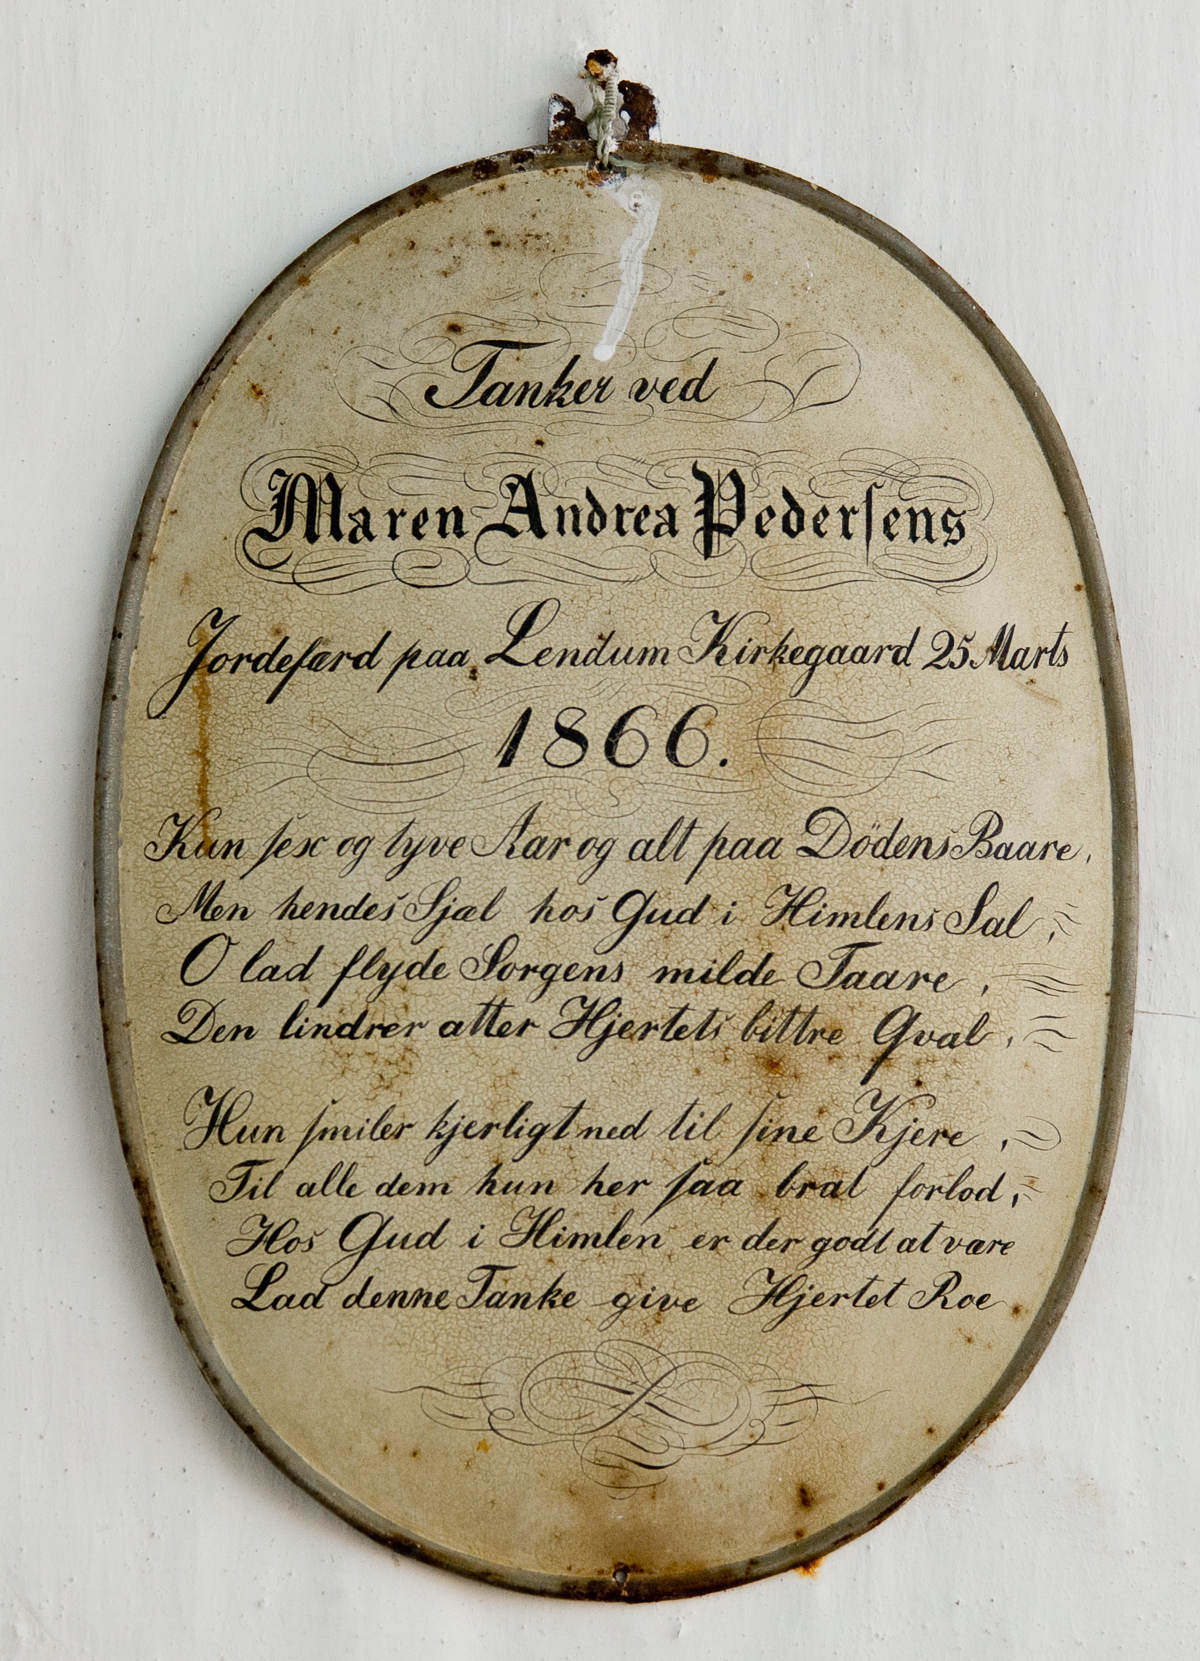 Tanker ved
Maren Andrea Pederſens
Jordefærd paa Lendum Kirkegaard 25 Marts
1866.
Kun ſex og tyve Aar og alt paa Dödens Baare,
Men hendes Sjæl hos Gud i Himlens Sal,
O lad flyde Sorgens milde Taare,
Den lindrer atter Hjertets bittre Qval,
Hun ſmiler kjerligt ned til ſine Kjere,
Til alle dem hun her ſaa brat forlod,
Hos Gud i Himlen er der godt at være
Lad denne Tanke give Hjertet Roe